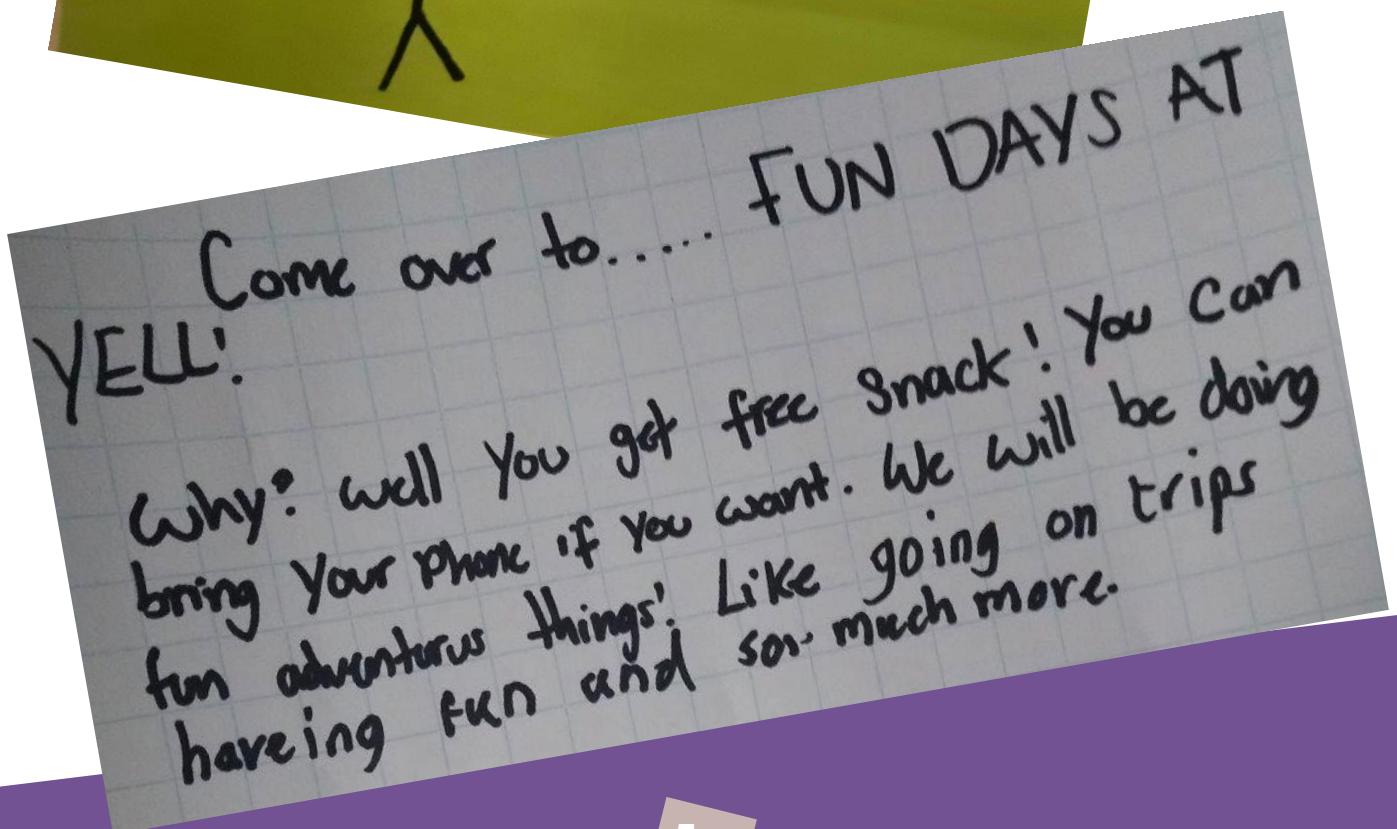 Come over to..... FUN DAYS AT
YELL!
Why? well you get free Snack! You can
bring your phone if you want. We will be doing
fun adventurus things! Like going on trips
haveing fun and so much more.